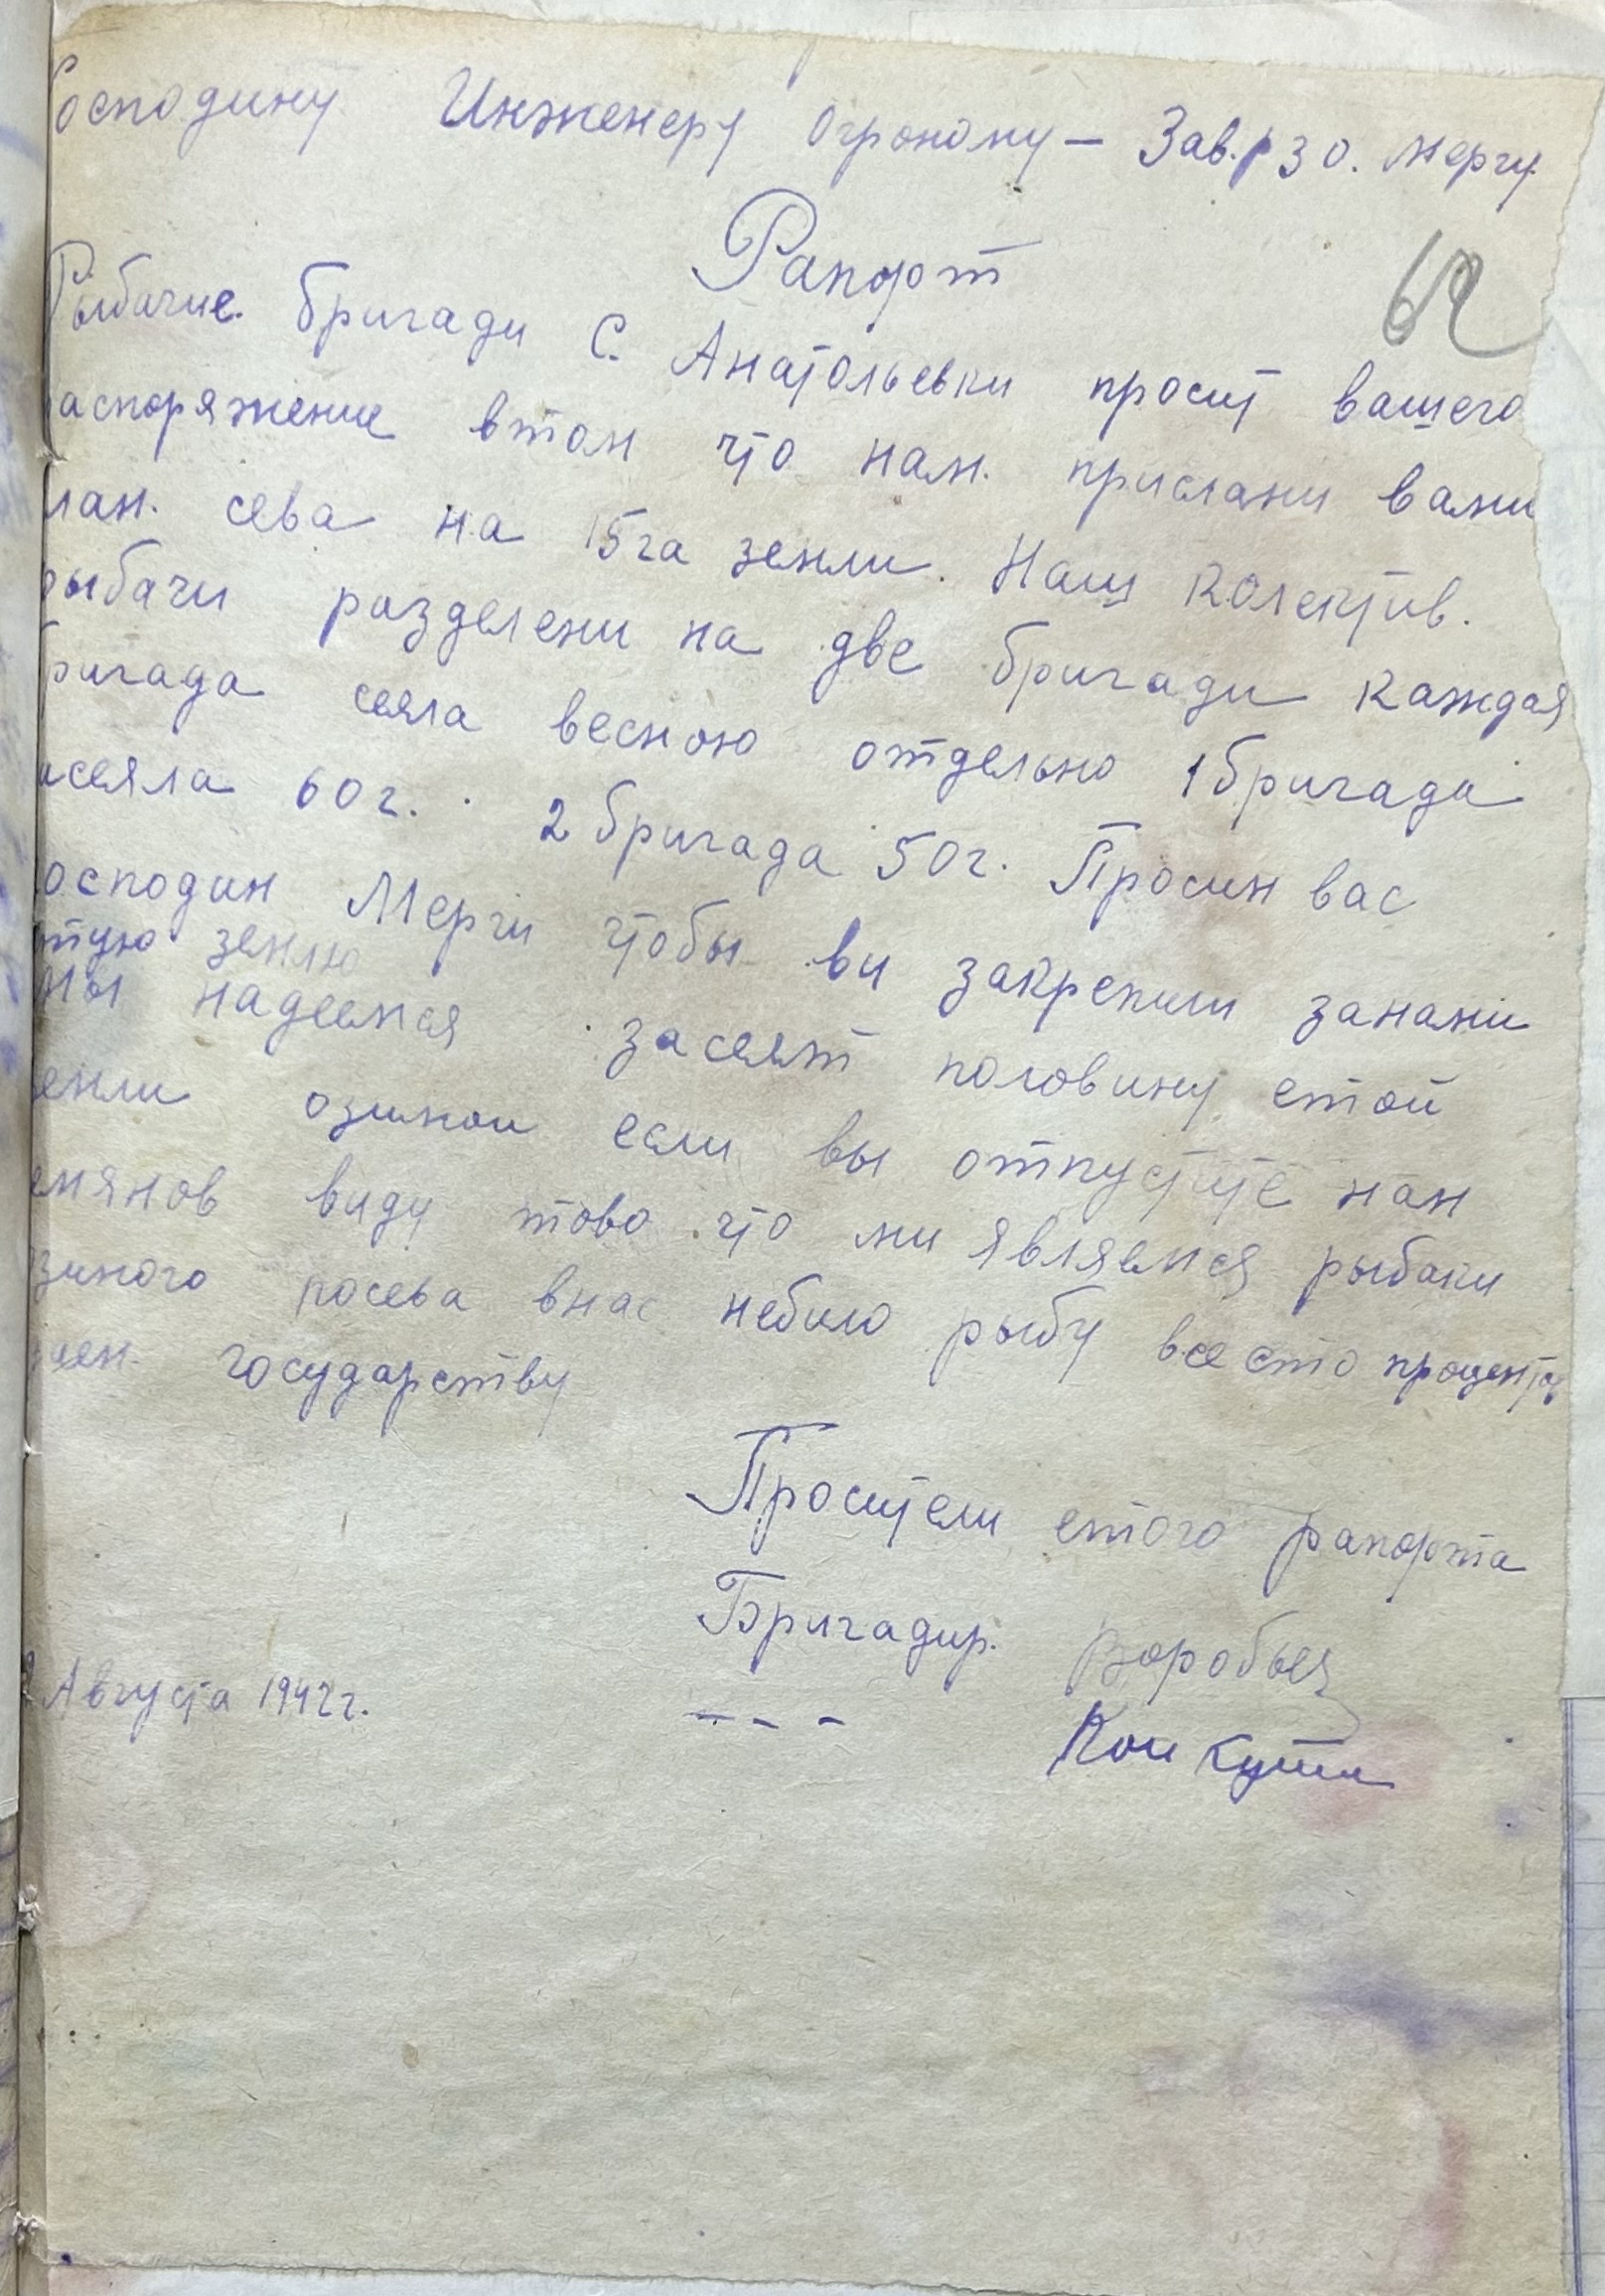 Господину Инженеру Огроному — Зав. РЗО. Мергу.
62
Рапорт
Рыбачие бригади С. Анатольевки просит вашего
аспоряжение втом что нам. прислани вами
лан. сева на 15 га земли. Наш колектив.
рыбачи разделени на две бригади каждая
бригада сеяла весною отдельно 1 бригада
асеяла 60 г. 2 бригада 50 г. Просим вас
осподин Мерги чтобы ви закрепили занами
тую землю
мы надеемся засеят половину етой
емли озимои если вы отпустите нам
емянов виду тово что ми являемся рыбаки
зимого посева внас небило рыбу все сто процентов
даем. государству
Просители етого рапорта
Бригадир. Воробьев
Августа 1942 г. - - -